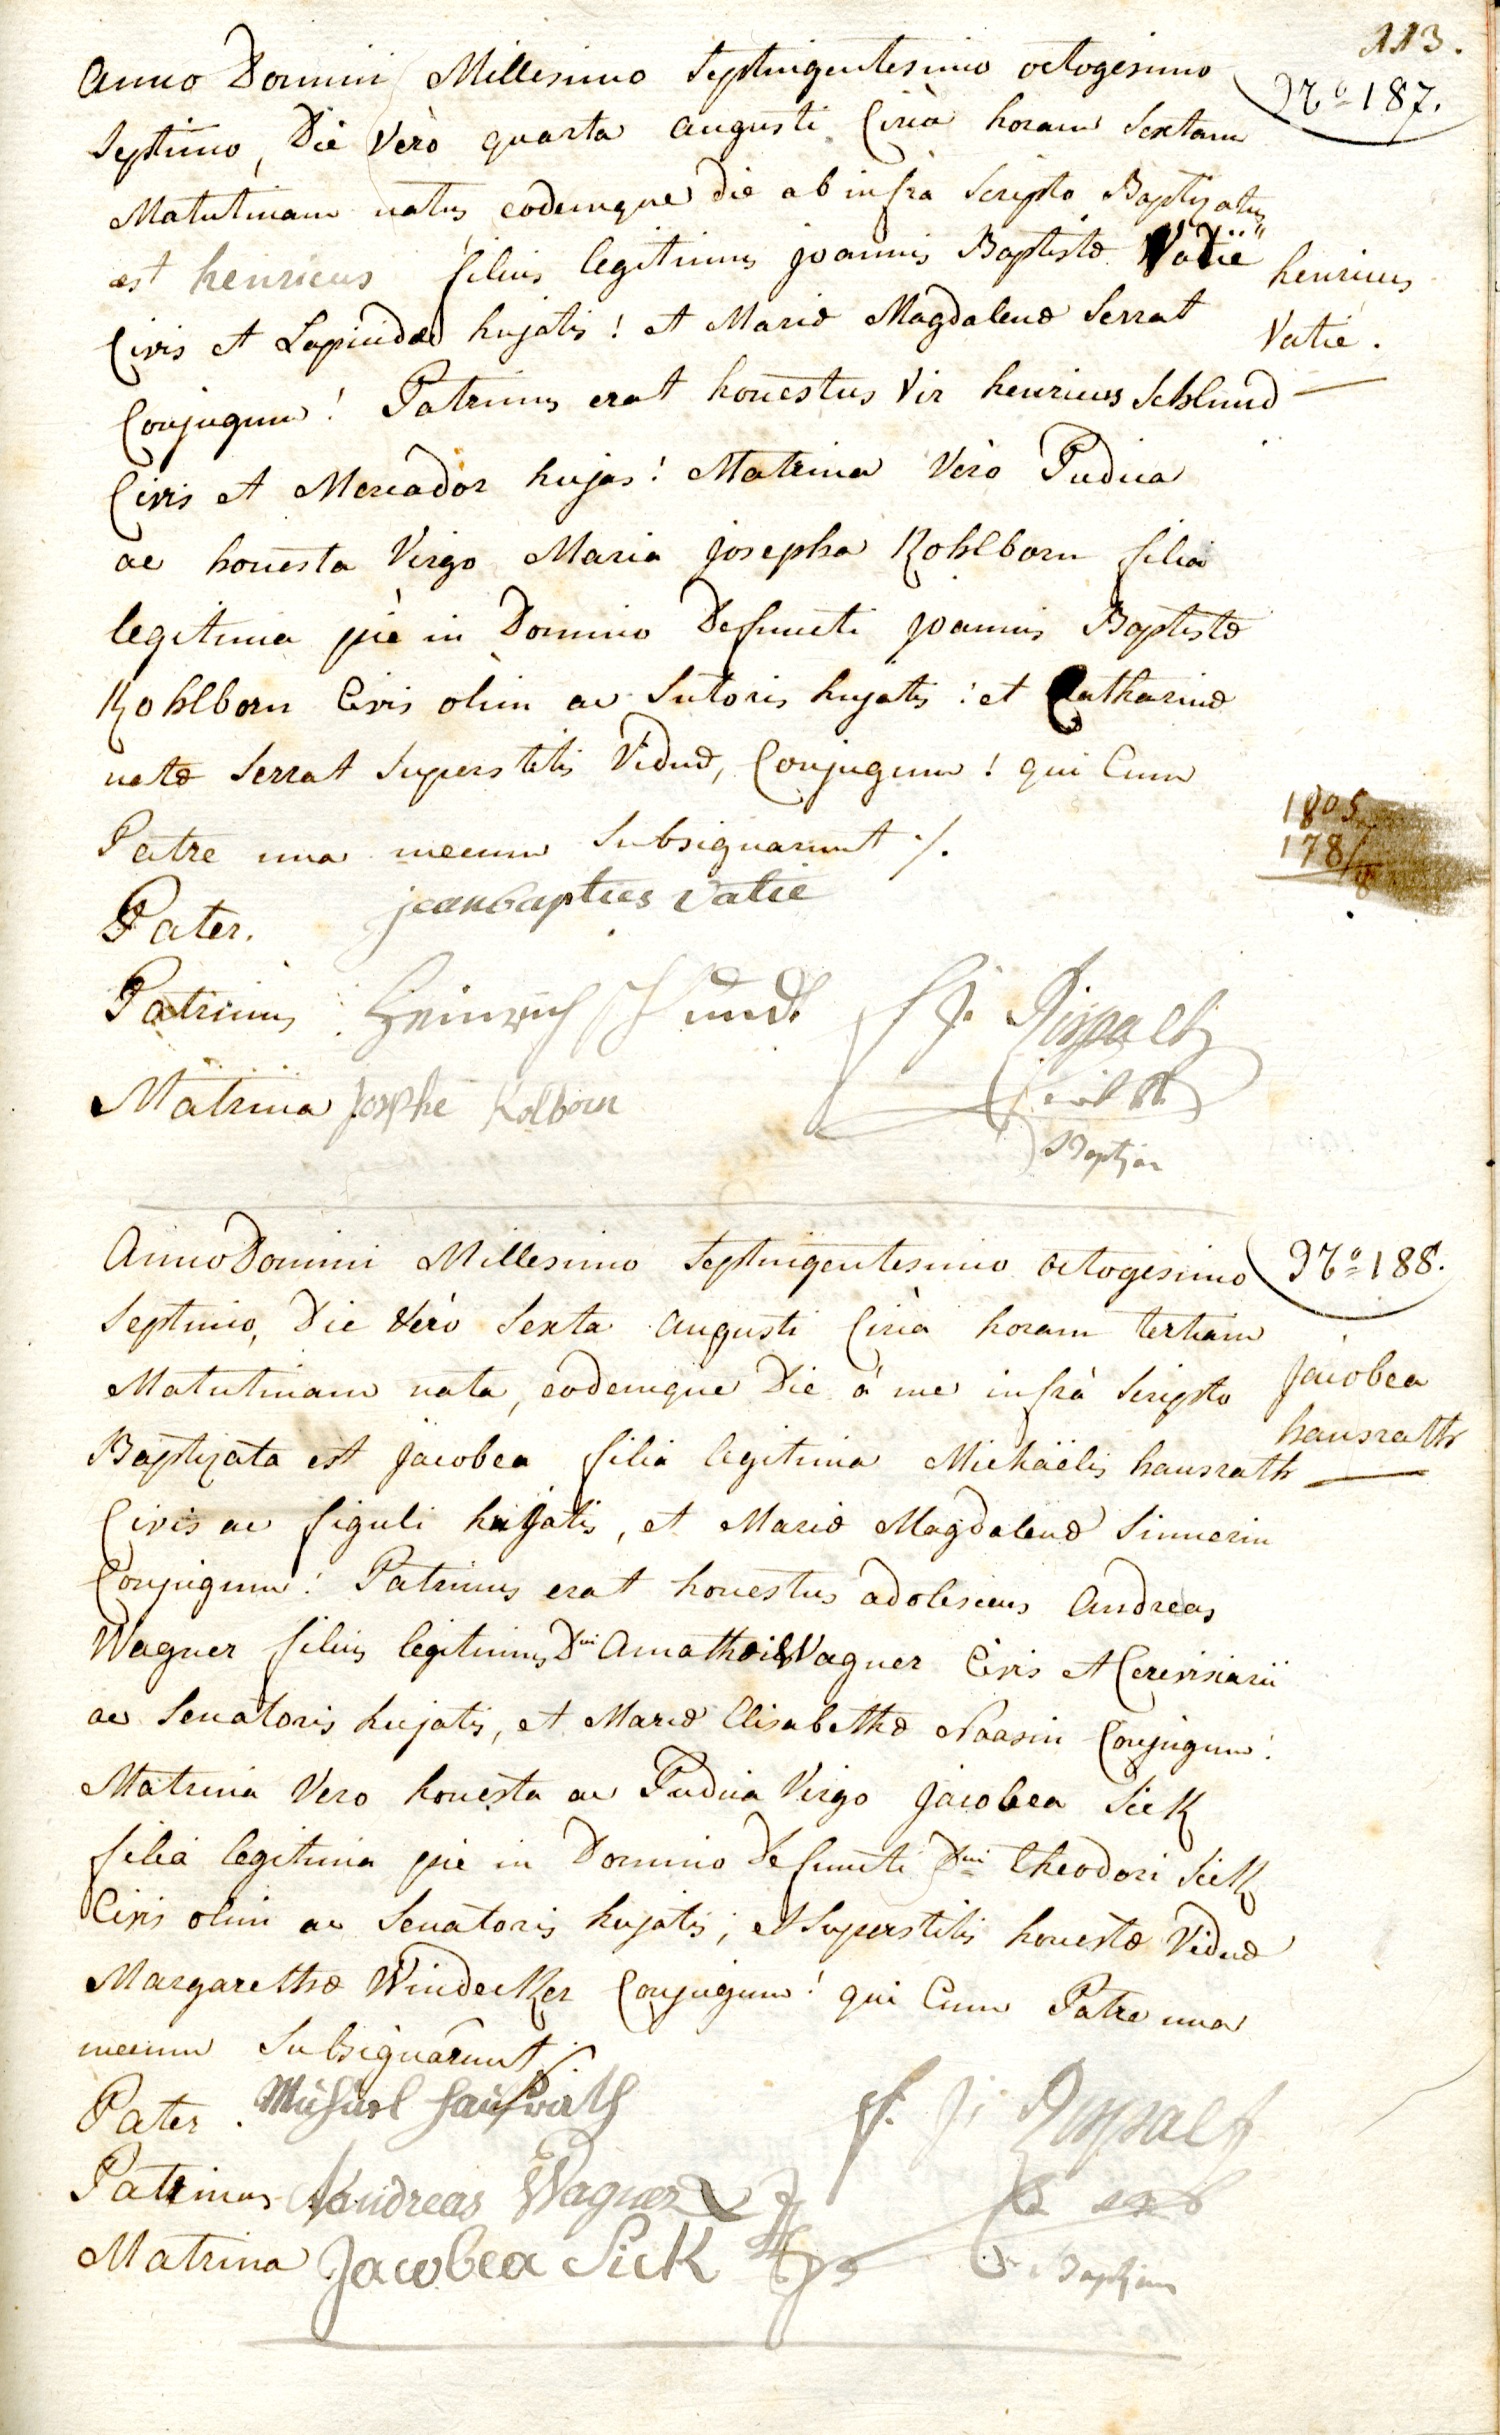 113.
Anno Domini Millesimo Septingentesimo octogesimo
Nro 187.
Septimo, Die Verò quarta augusti Circà horam Sextam
Matutinam natus eodemque die ab infrà Scripto Baptizatus
est henricus filius legitimus joannis Baptistæ Vatië
henricus
Civis et Lapicidæ hujatis! et Mariæ Magdalenæ Serrat
Vatie.
Conjugum! Patrinus erat honestus Vir henricus Schlund
Civis et Mercador hujas! Matrina Verò Pudica
ac honesta Virgo Maria Josepha Kohlborn filia
legitima piè in Domino Defuncti joannis Baptistæ
Kohlborn Civis olim ac Sutoris hujatis: et Catharinæ
natæ Serrat Superstitis Viduæ, Conjugum! qui Cum
1805
178
Patre una mecum Subsignarunt ./.
Pater. jeanbapties Vatie
Patrinus Heinrich Schlundt
Matrina Josephe Kolborn
Baptizans
Anno Domini Millesimo Septingentesimo octogesimo
Nro 188.
Septimo, Die Verò Sexta augusti Circà horam tertiam
Matutinam nata, eodemque Die à me infrà Scripto
Jacobea
Baptizata est Jacobea filia legitima Michaëlis hausrath
hausrath
Civis ac figuli hujatis, et Mariæ Magdalenæ Simmerin
Conjugum! Patrinus erat honestus adolescens Andreas
Wagner filius legitimus Dni Amathæi Wagner Civis et Cerevisiarii
ac Senatoris hujatis, et Mariæ Elisabethæ Naasin Conjugum!
Matrina Vero honesta ac Pudica Virgo Jacobea Sieck
filia legitima pie in Domino Defuncti Dni Theodori Sieck
Civis olim ac Senatoris hujatis; et Superstitis honestæ Viduæ
Margarethæ Windecker Conjugum! qui Cum Patre una
mecum Subsignarunt
Pater. Michael Haußrath
Patrinus Andreas Wagner
Matrina Jacobea Sieck
Baptizans